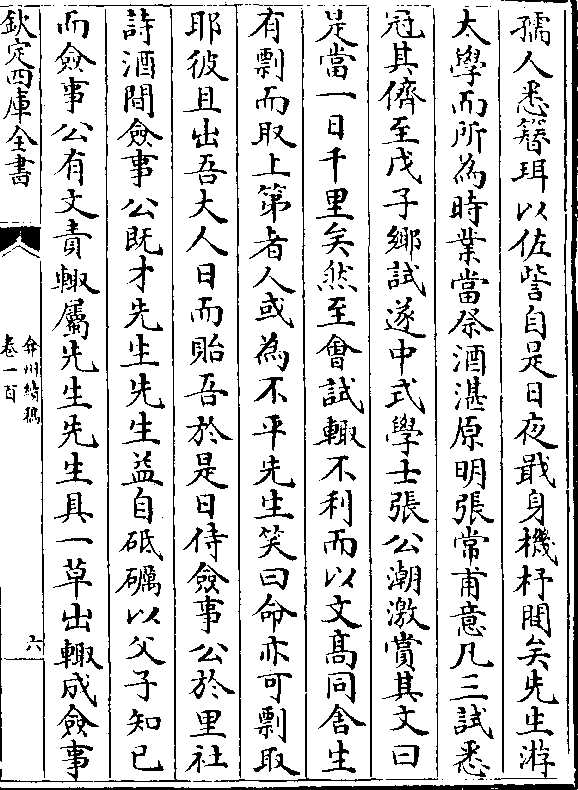 孺人悉簪珥以佐訾自是日夜戢身機杼間矣先生游
太學而所為時業當祭酒湛原明張常甫意凡三試悉
冠其儕至戊子鄉試遂中式學士張公潮激賞其文曰
是當一日千里矣然至會試輙不利而以文髙同舍生
有剽而取上第者人或為不平先生笑曰命亦可剽取
耶彼且出吾大人日而貽吾於是日侍僉事公於里社
詩酒間僉事公既才先生先生益自砥礪以父子知已
而僉事公有文責輙屬先生先生具一草出輙成僉事
欽定四庫全書
弇州續稿
卷一百
六